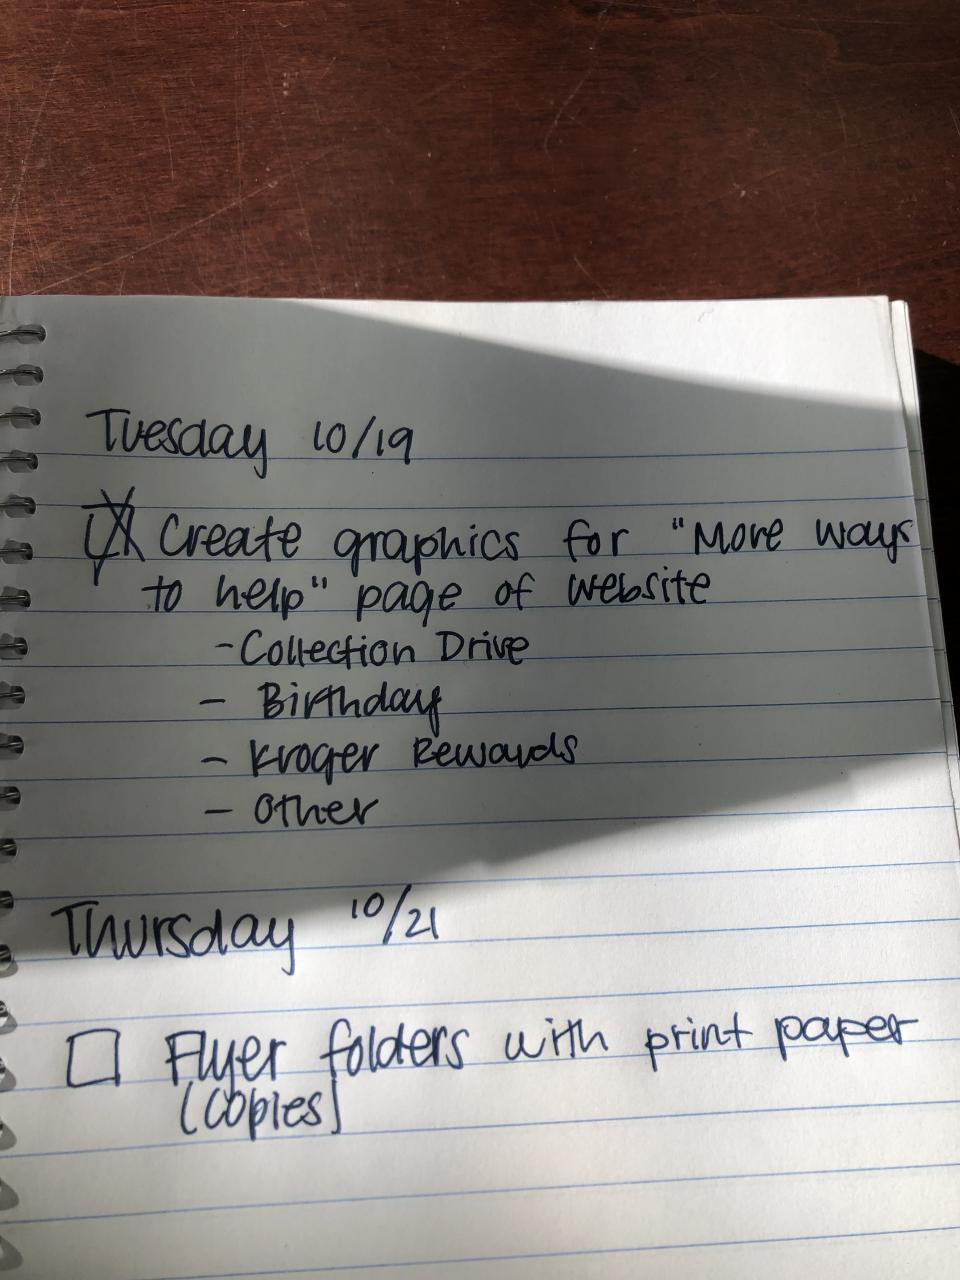 Tuesday 10/19
Create graphics for "More ways
to help" page of website
- Collection Drive
- Birthday
- Kroger Rewards
- Other
Thursday 10/21
Flyer folders with print paper
(copies)